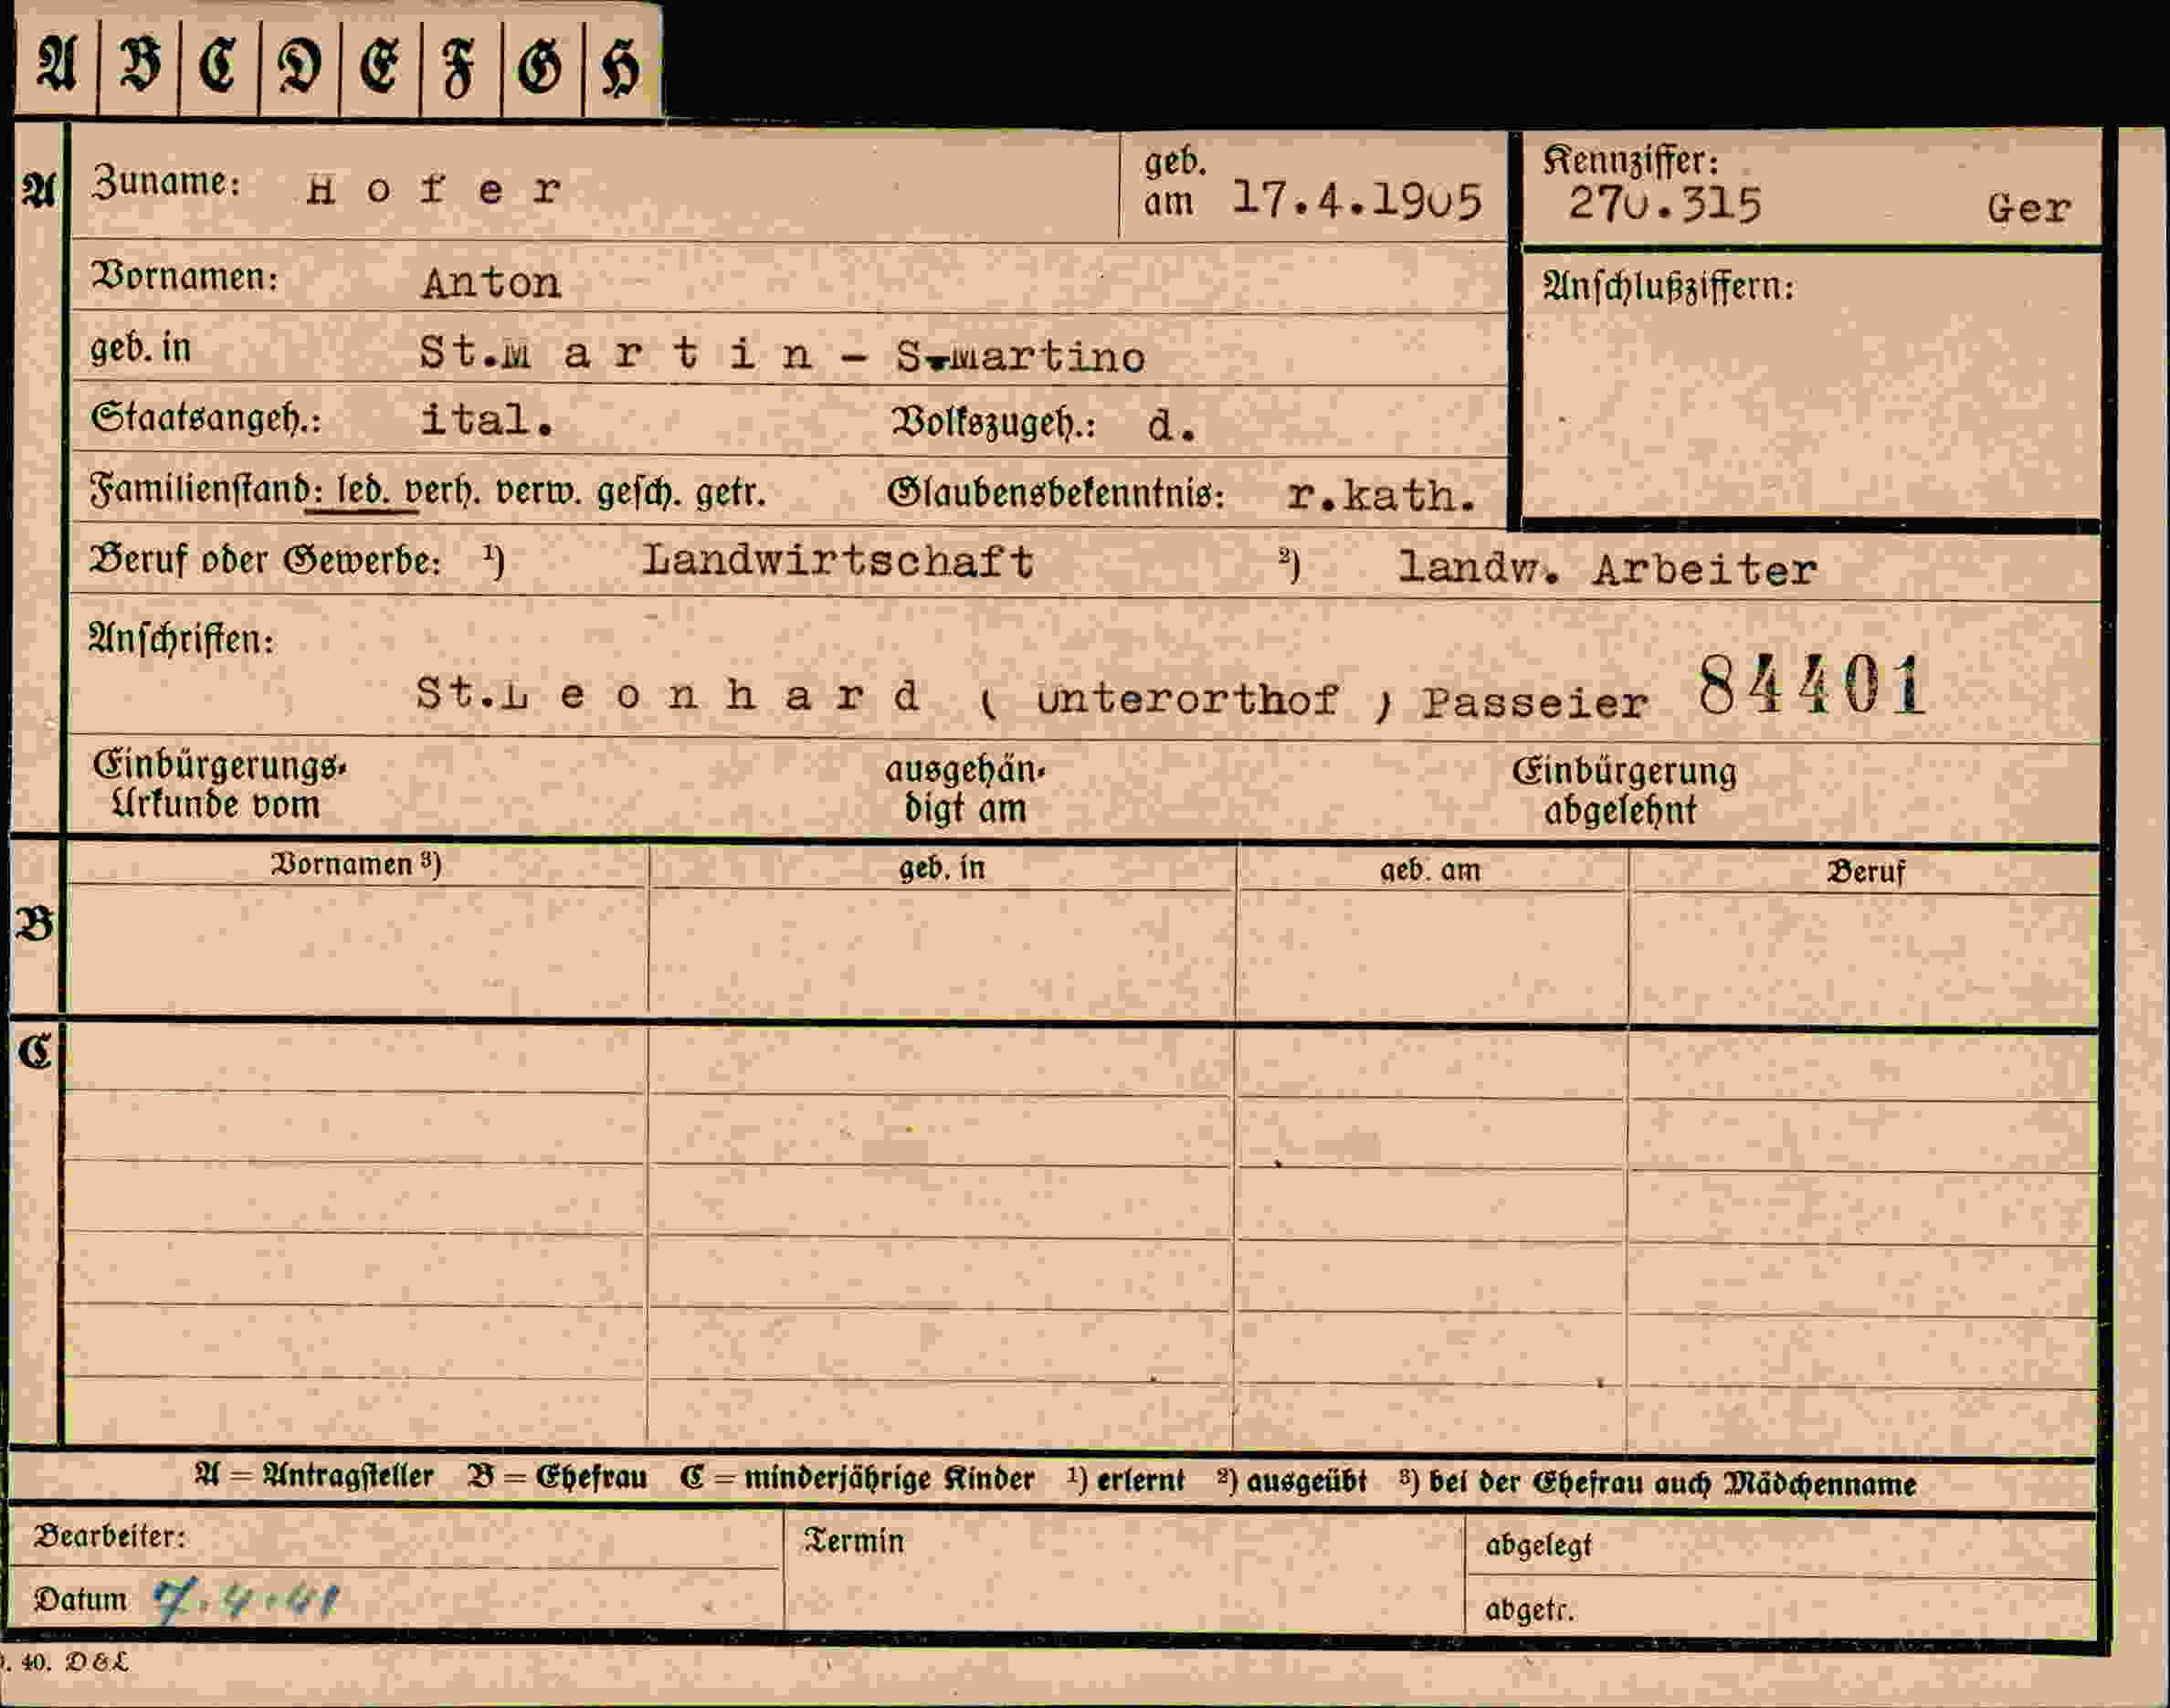 A B C D E F G H
A Zuname: Hofer geb. am 17.4.1905 Kennziffer: 270.315 Ger
Vornamen: Anton Anschlußziffern:
geb. in St.Martin - S.Martino
Staatsangeh.: ital. Volkszugeh.: d.
Familienstand: led. verh. verw. gesch. getr. Glaubensbekenntnis: r.kath.
Beruf oder Gewerbe: ¹) Landwirtschaft ²) landw. Arbeiter
Anschriften:
St.Leonhard ( Unterorthof ) Passeier 84401
Einbürgerungs- ausgehän- Einbürgerung
Urkunde vom digt am abgelehnt
Vornamen ³) geb. in geb. am Beruf
B
C
A = Antragsteller B = Ehefrau C = minderjährige Kinder ¹) erlernt ²) ausgeübt ³) bei der Ehefrau auch Mädchenname
Bearbeiter: Termin abgelegt
Datum 7.4.41 abgetr.
. 40. D & L